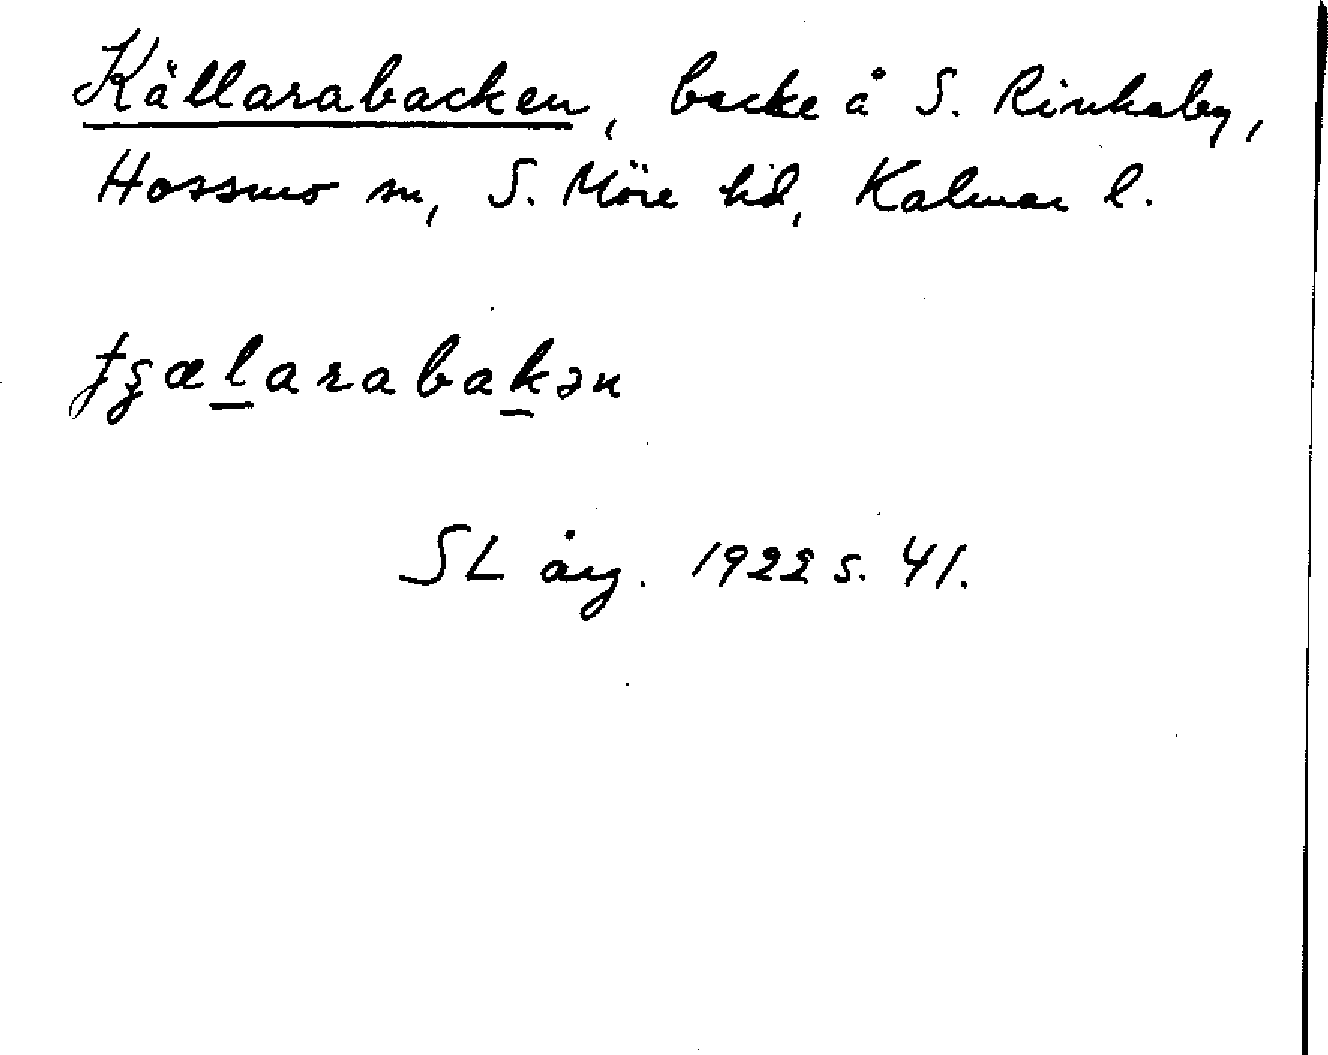 Källarabacken, backe å S. Rinkaby,
Hossmo sn, S. Möre hd, Kalmar l.
ɟʒælarabakən
SL årg. 1922 s. 41.